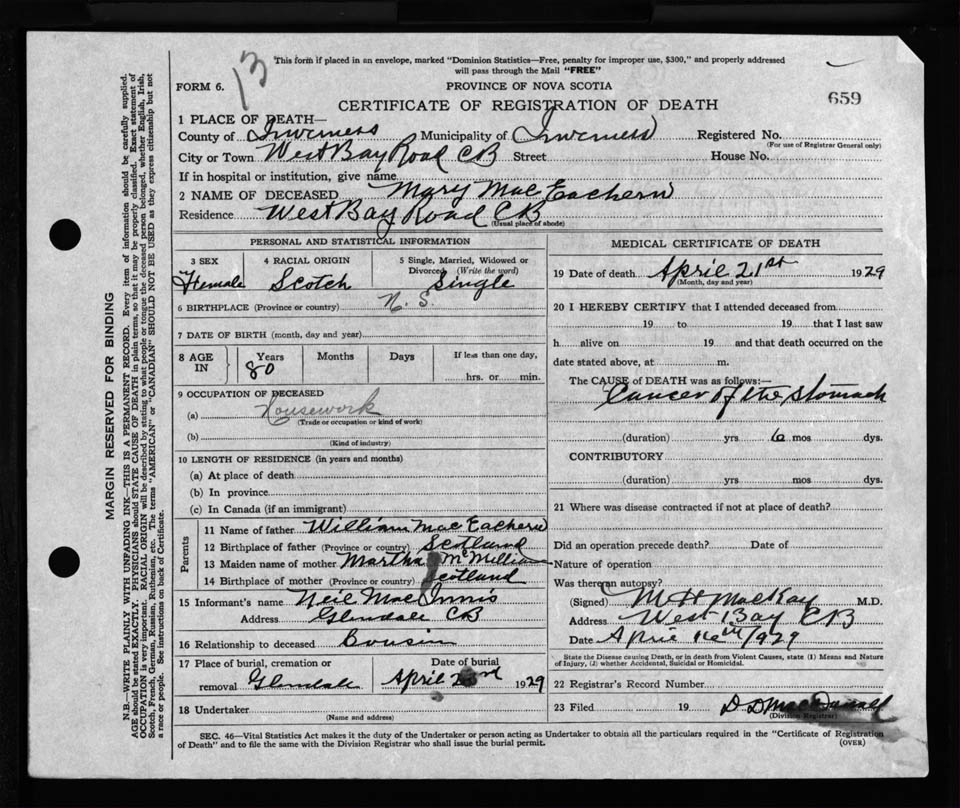 This form if placed in an envelope, marked "Dominion Statistics—Free, penalty for improper use, $300," and properly addressed
will pass through the Mail "FREE"
13
FORM 6.
PROVINCE OF NOVA SCOTIA
CERTIFICATE OF REGISTRATION OF DEATH
659
1 PLACE OF DEATH—
County of Inverness Municipality of Inverness Registered No.
(For use of Registrar General only)
City or Town West Bay Road CB Street House No.
If in hospital or institution, give name
2 NAME OF DECEASED Mary MacEachern
Residence West Bay Road CB
(Usual place of abode)
PERSONAL AND STATISTICAL INFORMATION
3 SEX 4 RACIAL ORIGIN 5 Single, Married, Widowed or
Divorced (Write the word)
Female Scotch Single
6 BIRTHPLACE (Province or country) N. S.
7 DATE OF BIRTH (month, day and year)
8 AGE IN Years Months Days If less than one day,
80 hrs. or min.
9 OCCUPATION OF DECEASED
(a) Housework
(Trade or occupation or kind of work)
(b)
(Kind of industry)
10 LENGTH OF RESIDENCE (in years and months)
(a) At place of death
(b) In province
(c) In Canada (if an immigrant)
Parents
11 Name of father William MacEachern
12 Birthplace of father (Province or country) Scotland
13 Maiden name of mother Martha McMillian
14 Birthplace of mother (Province or country) Scotland
15 Informant's name Neil MacInnis
Address Glendale CB
16 Relationship to deceased Cousin
17 Place of burial, cremation or Date of burial
removal Glendale April 23rd 1929
18 Undertaker
(Name and address)
MEDICAL CERTIFICATE OF DEATH
19 Date of death April 21st 1929
(Month, day and year)
20 I HEREBY CERTIFY that I attended deceased from
19 to 19 that I last saw
h alive on 19 and that death occurred on the
date stated above, at m.
The CAUSE of DEATH was as follows:—
Cancer of the Stomach
(duration) yrs 6 mos dys.
CONTRIBUTORY
(duration) yrs mos dys.
21 Where was disease contracted if not at place of death?
Did an operation precede death? Date of
Nature of operation
Was there an autopsy?
(Signed) M H MacKay M.D.
Address West Bay CB
Date April 1929
State the Disease causing Death, or in death from Violent Causes, state (1) Means and Nature
of Injury, (2) whether Accidental, Suicidal or Homicidal.
22 Registrar's Record Number
23 Filed 19 D D
(Division Registrar)
SEC. 46—Vital Statistics Act makes it the duty of the Undertaker or person acting as Undertaker to obtain all the particulars required in the "Certificate of Registration
of Death" and to file the same with the Division Registrar who shall issue the burial permit. (OVER)
MARGIN RESERVED FOR BINDING
N.B.—WRITE PLAINLY WITH UNFADING INK—THIS IS A PERMANENT RECORD. Every item of information should be carefully supplied.
AGE should be stated EXACTLY. PHYSICIANS should STATE CAUSE OF DEATH in plain terms, so that it may be properly classified. Exact statement of
OCCUPATION is very important. RACIAL ORIGIN will be described by stating to what people or tongue the deceased person belonged, whether English, Irish,
Scotch, French, German, Russian, Ruthenian, etc. The terms "AMERICAN" or "CANADIAN" SHOULD NOT BE USED as they express citizenship but not
a race or people. See instructions on back of Certificate.